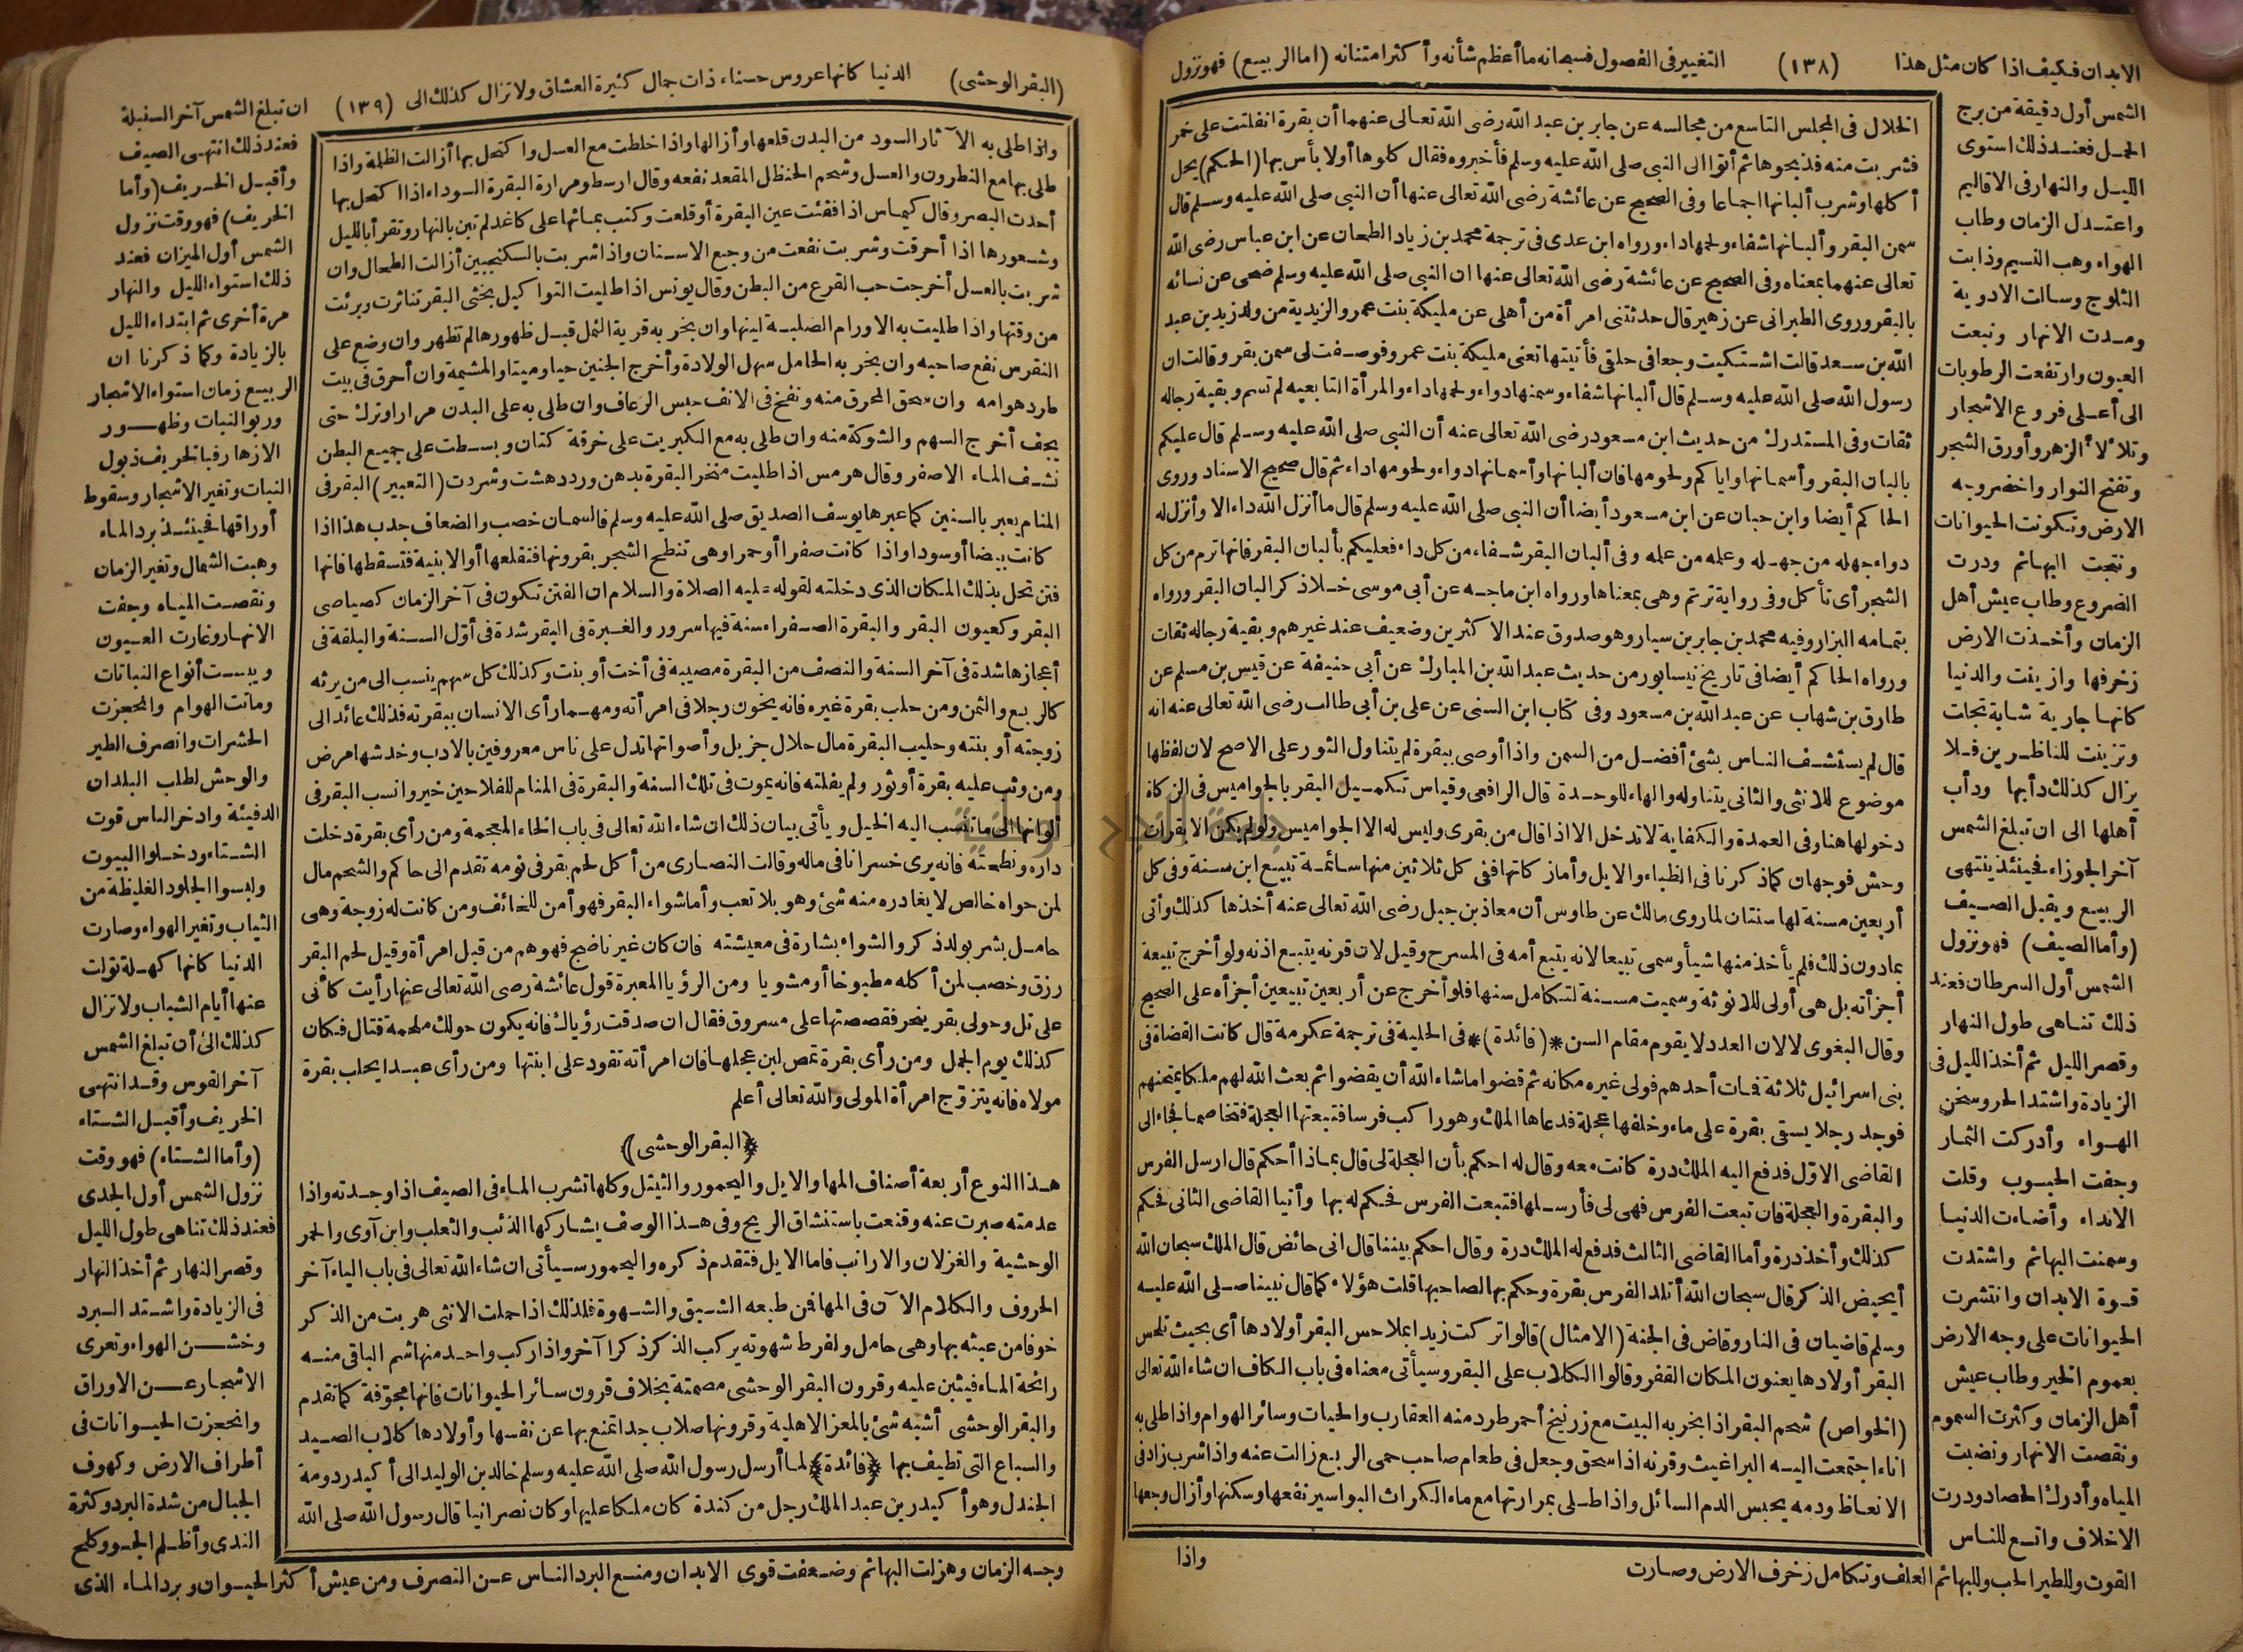 الابدان فكيف اذا كان مثل هذا (١٣٨) التغيير فى الفصول فسبحانه ما أعظم شأنه وأكثر امتنانه (اما الربيع) فهو نزول
الشمس أول دقيقة من برج
الحمل فعند ذلك استوى
الليل والنهار فى الاقاليم
واعتدل الزمان وطاب
الهواء وهب النسيم وذابت
الثلوج وسالت الاودية
ومدت الانهار ونبعت
العيون وارتفعت الرطوبات
الى أعلى فروع الاشجار
وتلألأ الزهر وأورق الشجر
وتفتح النوار واخضر وجه
الارض وتكونت الحيوانات
ونتجت البهائم ودرت
الضروع وطاب عيش أهل
الزمان وأخذت الارض
زخرفها وازينت والدنيا
كانها جارية شابة تجات
وتزينت للناظرين فلا
يزال كذلك دأبها ودأب
أهلها الى ان تبلغ الشمس
آخر الجوزاء فحينئذ ينتهى
الربيع ويقبل الصيف
(وأما الصيف) فهو نزول
الشمس أول السرطان فعند
ذلك تناهى طول النهار
وقصر الليل ثم أخذ الليل فى
الزيادة واشتد الحر وسخن
الهواء وأدركت الثمار
وجفت الحبوب وقلت
الانداء وأضاءت الدنيا
وسمنت البهائم واشتدت
قوة الابدان وانتشرت
الحيوانات على وجه الارض
بعموم الخير وطاب عيش
أهل الزمان وكثرت السموم
ونقصت الانهار ونضبت
المياه وأدرك الحصاد ودرت
الاخلاف واتسع للناس
القوت وللطير الحب وللبهائم العلف وتكامل زخرف الارض وصارت
الخلال فى المجلس التاسع من مجالسه عن جابر بن عبد الله رضى الله تعالى عنهما أن بقرة انفلتت على خمر
فشربت منه فذبحوها ثم أتوا الى النبى صلى الله عليه وسلم فأخبروه فقال كلوها أولا بأس بها (الحكم) يحل
أكلها وشرب ألبانها اجماعا وفى الصحيح عن عائشة رضى الله تعالى عنها أن النبى صلى الله عليه وسلم قال
سمن البقر وألبانها شفاء ولحمها داء ورواه ابن عدى فى ترجمة محمد بن زياد الطحان عن ابن عباس رضى الله
تعالى عنهما بمعناه وفى الصحيح عن عائشة رضى الله تعالى عنها ان النبى صلى الله عليه وسلم ضحى عن نسائه
بالبقر وروى الطبرانى عن زهير قال حدثتنى امرأة من أهلى عن مليكة بنت عمرو الزيدية من ولد زيد بن عبد
الله بن سعد قالت اشتكيت وجعا فى حلقى فأتيتها تعنى مليكة بنت عمرو فوصفت لى سمن بقر وقالت ان
رسول الله صلى الله عليه وسلم قال ألبانها شفاء وسمنها دواء ولحمها داء والمرأة التابعيه لم تسم وبقية رجاله
ثقات وفى المستدرك من حديث ابن مسعود رضى الله تعالى عنه أن النبى صلى الله عليه وسلم قال عليكم
بالبان البقر وأسمانها واياكم ولحومها فان ألبانها وأسمانها دواء ولحومها داء ثم قال صحيح الاسناد وروى
الحاكم أيضا وابن حبان عن ابن مسعود أيضا أن النبى صلى الله عليه وسلم قال ما أنزل الله داء الا وأنزل له
دواء جهله من جهله وعلمه من علمه وفى ألبان البقر شفاء من كل داء فعليكم بألبان البقر فانها ترم من كل
الشجر أى تأكل وفى رواية ترتم وهى بمعناها ورواه ابن ماجه عن أبى موسى خلا ذكر البان البقر ورواه
بتمامه البزار وفيه محمد بن جابر بن سيار وهو صدوق عند الاكثرين وضعيف عند غيرهم وبقية رجاله ثقات
ورواه الحاكم أيضا فى تاريخ نيسابور من حديث عبد الله بن المبارك عن أبى حنيفة عن قيس بن مسلم عن
طارق بن شهاب عن عبد الله بن مسعود وفى كتاب ابن السنى عن على بن أبى طالب رضى الله تعالى عنه انه
قال لم يستشف الناس بشئ أفضل من السمن واذا أوصى ببقرة لم يتناول الثور على الاصح لان لفظها
موضوع للانثى والثانى يتناوله والهاء للوحدة قال الرافعى وقياس تكميل البقر بالجواميس فى الزكاة
دخولها هنا وفى العمدة والكفاية لا تدخل الا اذا قال من بقرى وليس له الا الجواميس ولو لم يكن الا بقرات
وحش فوجهان كما ذكرنا فى الظباء والابل وأما زكاتها ففى كل ثلاثين منها سائمة تبيع ابن سنة وفى كل
أربعين مسنة لها سنتان لما روى مالك عن طاوس أن معاذ بن جبل رضى الله تعالى عنه أخذها كذلك وأتى
بمادون ذلك فلم يأخذ منها شيأ وسمى تبيعا لانه يتبع أمه فى المسرح وقيل لان قرنه يتبع اذنه ولو أخرج تبيعة
أجزأته بل هى أولى للانوثة وسميت مسنة لتكامل سنها فلو أخرج عن أربعين تبيعين أجزأه على الصحيح
وقال البغوى لا لان العدد لا يقوم مقام السن *(فائدة)* فى الحلية فى ترجمة عكرمة قال كانت القضاة فى
بنى اسرائيل ثلاثة فمات أحدهم فولى غيره مكانه ثم قضوا ما شاء الله أن يقضوا ثم بعث الله لهم ملكا يمتحنهم
فوجد رجلا يسقى بقرة على ماء وخلفها عجلة فدعاها الملك وهو راكب فرسا فتبعتها العجلة فتخاصما فجاء الى
القاضى الاول فدفع اليه الملك درة كانت معه وقال له احكم بأن العجلة لى قال بماذا أحكم قال ارسل الفرس
والبقرة والعجلة فان تبعت الفرس فهى لى فأرسلها فتبعت الفرس فحكم له بها وأتيا القاضى الثانى فحكم
كذلك وأخذ درة وأما القاضى الثالث فدفع له الملك درة وقال احكم بيننا قال انى حائض قال الملك سبحان الله
أيحيض الذكر قال سبحان الله أتلد الفرس بقرة وحكم بها لصاحبها قلت هؤلاء كما قال نبينا صلى الله عليه
وسلم قاضيان فى النار وقاض فى الجنة (الامثال) قالوا تركت زيدا بملاحس البقر أولادها أى بحيث تلحس
البقر أولادها يعنون المكان القفر وقالوا الكلاب على البقر وسيأتى معناه فى باب الكاف ان شاء الله تعالى
(الخواص) شحم البقر اذا بخر به البيت مع زرنيخ أحمر طرد منه العقارب والحيات وسائر الهوام واذا طلى به
اناء اجتمعت اليه البراغيث وقرنه اذا سحق وجعل فى طعام صاحب حمى الربع زالت عنه واذا شرب زاد فى
الانعاظ ودمه يحبس الدم السائل واذا طلى بمرارتها مع ماء الكراث البواسير نفعها وسكنها وأزال وجعها
واذا
(البقر الوحشى) الدنيا كانها عروس حسناء ذات جمال كثيرة العشاق ولا تزال كذلك الى (١٣٩) ان تبلغ الشمس آخر السنبلة
واذا طلى به الآثار السود من البدن قلعها وأزالها واذا خلطت مع العسل واكتحل بها أزالت الظلمة واذا
طلى بها مع النطرون والعسل وشحم الحنظل المقعد نفعه وقال ارسطو مرارة البقرة السوداء اذا اكتحل بها
أحدت البصر وقال كيماس اذا فقئت عين البقرة أو قلعت وكتب بمائها على كاغد لم تبن بالنهار وتقرأ بالليل
وشعورها اذا أحرقت وشربت نفعت من وجع الاسنان واذا شربت بالسكنجبين أزالت الطحال وان
شربت بالعسل أخرجت حب القرع من البطن وقال يونس اذا طليت الثواكيل بخثى البقر تناثرت وبرئت
من وقتها واذا طليت به الاورام الصلبة لينها وان بخر به قرية النمل قبل ظهورها لم تظهر وان وضع على
النقرس نفع صاحبه وان بخر به الحامل سهل الولادة وأخرج الجنين حيا وميتا والمشيمة وان أحرق فى بيت
طرد هوامه وان سحق المحرق منه ونفخ فى الانف حبس الرعاف وان طلى به على البدن مرارا وترك حتى
يجف أخرج السهم والشوكة منه وان طلى به مع الكبريت على خرقة كتان وبسطت على جميع البطن
نشف الماء الاصفر وقال هرمس اذا طليت منخر البقرة بدهن ورد دهشت وشردت (التعبير) البقر فى
المنام يعبر بالسنين كما عبرها يوسف الصديق صلى الله عليه وسلم فالسمان خصب والضعاف جدب هذا اذا
كانت بيضا أو سودا واذا كانت صفرا أو حمرا وهى تنطح الشجر بقرونها فتقلعها أو الابنية فتسقطها فانها
فتن تحل بذلك المكان الذى دخلته لقوله عليه الصلاة والسلام ان الفتن تكون فى آخر الزمان كصياصى
البقر وكعيون البقر والبقرة الصفراء سنة فيها سرور والغبرة فى البقر شدة فى أول السنة والبلقة فى
أعجازها شدة فى آخر السنة والنصف من البقرة مصيبة فى أخت أو بنت وكذلك كل سهم ينسب الى من يرثه
كالربع والثمن ومن حلب بقرة غيره فانه يخون رجلا فى امرأته ومهما رأى الانسان ببقرته فذلك عائد الى
زوجته أو بنته وحليب البقرة مال حلال جزيل وأصواتها تدل على ناس معروفين بالادب وخدشها مرض
ومن وثب عليه بقرة أو ثور ولم يفلته فانه يموت فى تلك السنة والبقرة فى المنام للفلاحين خير وانسب البقر فى
ألوانها الى ما تنسب اليه الخيل ويأتى بيان ذلك ان شاء الله تعالى فى باب الخاء المعجمة ومن رأى بقرة دخلت
داره ونطحته فانه يرى خسرانا فى ماله وقالت النصارى من أكل لحم بقر فى نومه تقدم الى حاكم والشحم مال
لمن حواه خالص لا يغادره منه شئ وهو بلا تعب وأما شواء البقر فهو أمن للخائف ومن كانت له زوجة وهى
حامل بشر بولد ذكر والشواء بشارة فى معيشته فان كان غير ناضج فهو هم من قبل امرأة وقيل لحم البقر
رزق وخصب لمن أكله مطبوخا أو مشويا ومن الرؤيا المعبرة قول عائشة رضى الله تعالى عنها رأيت كأنى
على تل وحولى بقر ينحر فقصصتها على مسروق فقال ان صدقت رؤياك فانه يكون حولك ملحمة قتال فكان
كذلك يوم الجمل ومن رأى بقرة تمص لبن عجلها فان امرأته تقود على ابنتها ومن رأى عبدا يحلب بقرة
مولاه فانه يتزوج امرأة المولى والله تعالى أعلم
(البقر الوحشى)
هذا النوع أربعة أصناف المها والايل واليحمور والثيتل وكلها تشرب الماء فى الصيف اذا وجدته واذا
عدمته صبرت عنه وقنعت باستنشاق الريح وفى هذا الوصف يشاركها الذئب والثعلب وابن آوى والحمر
الوحشية والغزلان والارانب فاما الايل فتقدم ذكره واليحمور سيأتى ان شاء الله تعالى فى باب الياء آخر
الحروف والكلام الآن فى المها فمن طبعه الشبق والشهوة فلذلك اذا حملت الانثى هربت من الذكر
خوفا من عبثه بها وهى حامل ولفرط شهوته يركب الذكر ذكرا آخر واذا ركب واحد منها شم الباقى منه
رائحة الماء فيثبن عليه وقرون البقر الوحشى مصمتة بخلاف قرون سائر الحيوانات فانها مجوفة كما تقدم
والبقر الوحشى أشبه شئ بالمعز الاهلية وقرونها صلاب جدا تمنع بها عن نفسها وأولادها كلاب الصيد
والسباع التى تطيف بها (فائدة) لما أرسل رسول الله صلى الله عليه وسلم خالد بن الوليد الى أكيدر دومة
الجندل وهو أكيدر بن عبد الملك رجل من كندة كان ملكا عليها وكان نصرانيا قال رسول الله صلى الله
فعند ذلك انتهى الصيف
وأقبل الخريف (وأما
الخريف) فهو وقت نزول
الشمس أول الميزان فعند
ذلك استواء الليل والنهار
مرة أخرى ثم ابتداء الليل
بالزيادة وكما ذكرنا ان
الربيع زمان استواء الاشجار
وربو النبات وظهور
الازهار فبالخريف ذبول
النبات وتغير الاشجار وسقوط
أوراقها فحينئذ برد الماء
وهبت الشمال وتغير الزمان
ونقصت المياه وجفت
الانهار وغارت العيون
ويبست أنواع النباتات
وماتت الهوام وانحجزت
الحشرات وانصرف الطير
والوحش لطلب البلدان
الدفيئة وادخر الناس قوت
الشتاء ودخلوا البيوت
ولبسوا الجلود الغليظة من
الثياب وتغير الهواء وصارت
الدنيا كانها كهلة تولت
عنها أيام الشباب ولا تزال
كذلك الى أن تبلغ الشمس
آخر القوس وقد انتهى
الخريف وأقبل الشتاء
(وأما الشتاء) فهو وقت
نزول الشمس أول الجدى
فعند ذلك تناهى طول الليل
وقصر النهار ثم أخذ النهار
فى الزيادة واشتد البرد
وخشن الهواء وتعرى
الاشجار عن الاوراق
وانحجزت الحيوانات فى
أطراف الارض وكهوف
الجبال من شدة البرد وكثرة
الندى وأظلم الجو وكلح
وجه الزمان وهزلت البهائم وضعفت قوى الابدان ومنع البرد الناس عن التصرف ومن عيش أكثر الحيوان وبرد الماء الذى